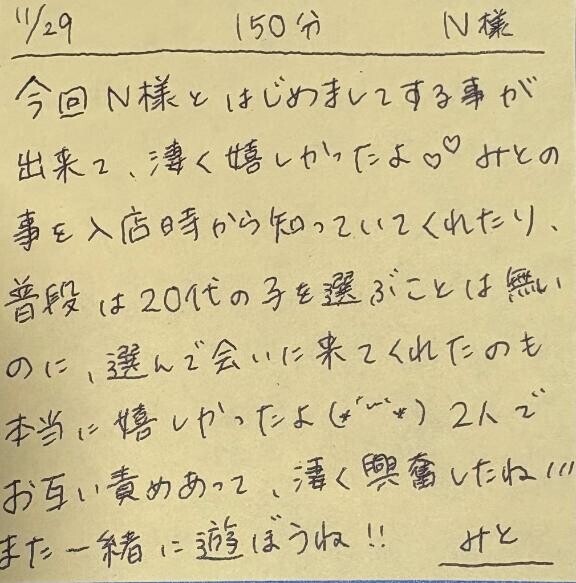 11/29 150分 N様
今回N様とはじめましてする事が
出来て、凄く嬉しかったよ♡♡みとの
事を入店時から知っていてくれたり、
普段は20代の子を選ぶことは無い
のに、選んで会いに来てくれたのも
本当に嬉しかったよ(*˘︶˘*)2人で
お互い責めあって、凄く興奮したね!!!
また一緒に遊ぼうね!! みと